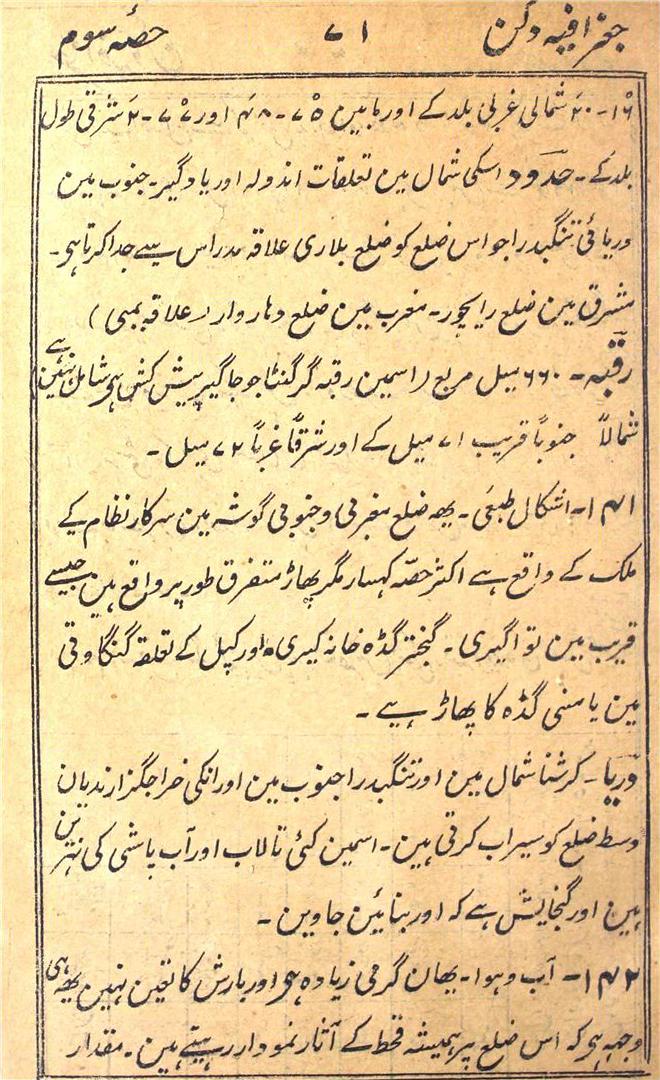 جغرافیہ دکن ۷۱ حصہ سوم
۱۶ْ-۲۰َ شمالی غربی بلد کے اور مابین ۷۵ْ-۴۸َ اور ۷۷ْ-۲َ شرقی طول
بلد کے۔ حدود اسکی شمال مین تعلقات اندولہ اور یادگیر۔ جنوب مین
دریائی تنگبدرا جو اس ضلع کو ضلع بلاری علاقہ مدراس سے جدا کرتا ہی۔
مشرق مین ضلع رایچور۔ مغرب مین ضلع دہاروار (علاقہ بمبی)
رقبہ۔ ۶۶۰ میل مربع (اسمین رقبہ گرگنٹا جو جاگیر پیش کشی ہی شامل نہین ہے)
شمالاً جنوباً قریب ۷۱ میل کے اور شرقاً غرباً ۷۲ میل۔
۱۴۱۔ اشکال طبعی۔ یہہ ضلع مغربی وجنوبی گوشہ مین سرکار نظام کے
ملک کے واقع ہے اکثر حصہ کہسار مگر پہاڑ متفرق طور پر واقع ہین جیسے
قریب مین تواگیری۔ گنجتر گڈہ خانہ کیری، اور کپل کے تعلقہ گنگاوتی
مین یا منی گڈہ کا پہاڑ ہے۔
دریا۔ کرشنا شمال مین اور تنگبدرا جنوب مین اور انکی خراجگزار ندیان
وسط ضلع کو سیراب کرتی ہین۔ اسمین کئی تالاب اور آب پاشی کی نہرین
ہین اور گنجایش ہے کہ اور بنائین جاوین۔
۱۴۲۔ آب وہوا۔ یہان گرمی زیادہ ہی اور بارش کا تعین نہین یہہ ہی
وجہہ ہی کہ اس ضلع پر ہمیشہ قحط کے آثار نمودار رہتے ہین۔ مقدار